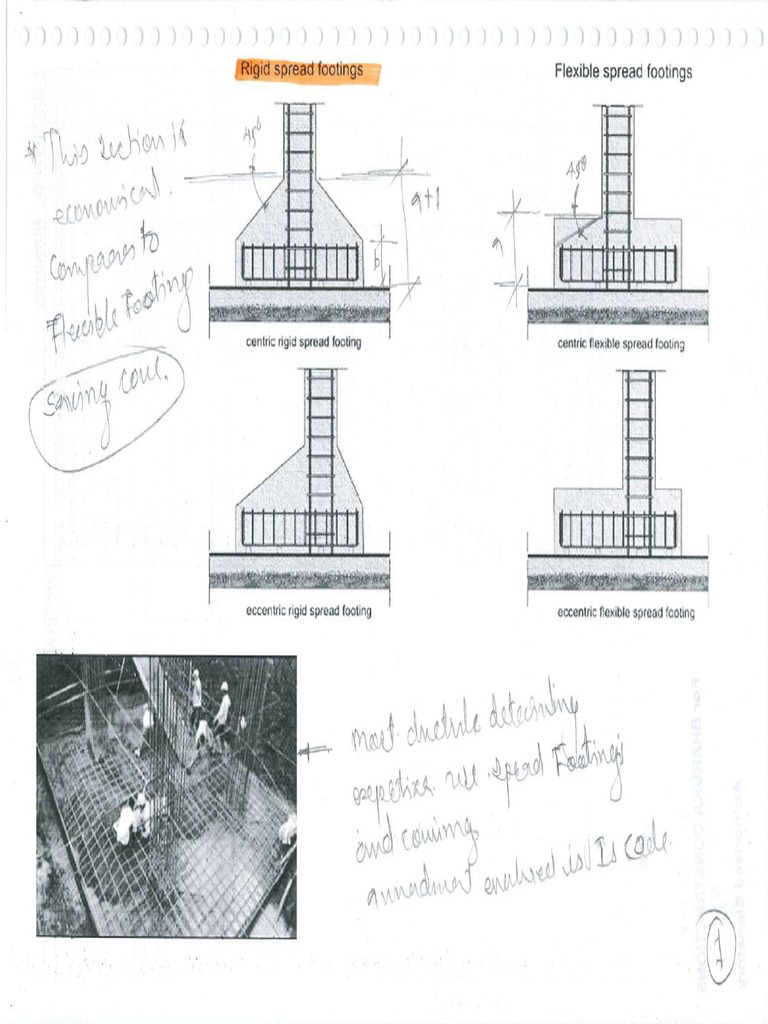 Rigid spread footings
Flexible spread footings
* This section is
economical.
Compares to
Flexible Footing
Saving conc.
45°
a+1
b
45°
a
centric rigid spread footing
centric flexible spread footing
eccentric rigid spread footing
eccentric flexible spread footing
most ductule
use spread Footings
and
is Is Code.
1